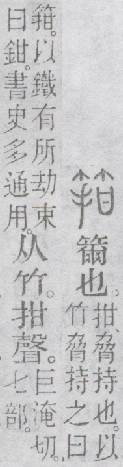 箝
籋也。
拑、脅持也。以
竹脅持之曰
箝。以鐵有所劫束
曰鉗。書史多通用。
从竹。拑聲。
巨淹切。
七部。